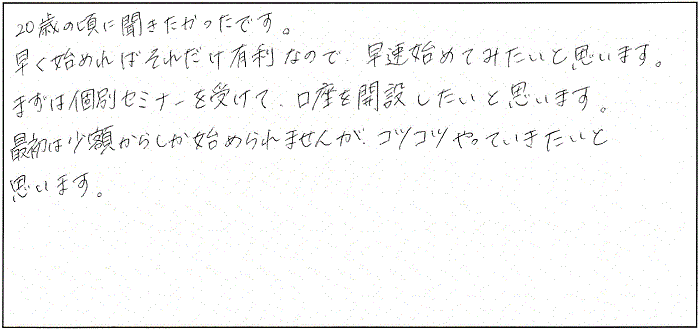 20歳の頃に聞きたかったです。
早く始めればそれだけ有利なので、早速始めてみたいと思います。
まずは個別セミナーを受けて、口座を開設したいと思います。
最初は少額からしか始められませんが、コツコツやっていきたいと
思います。